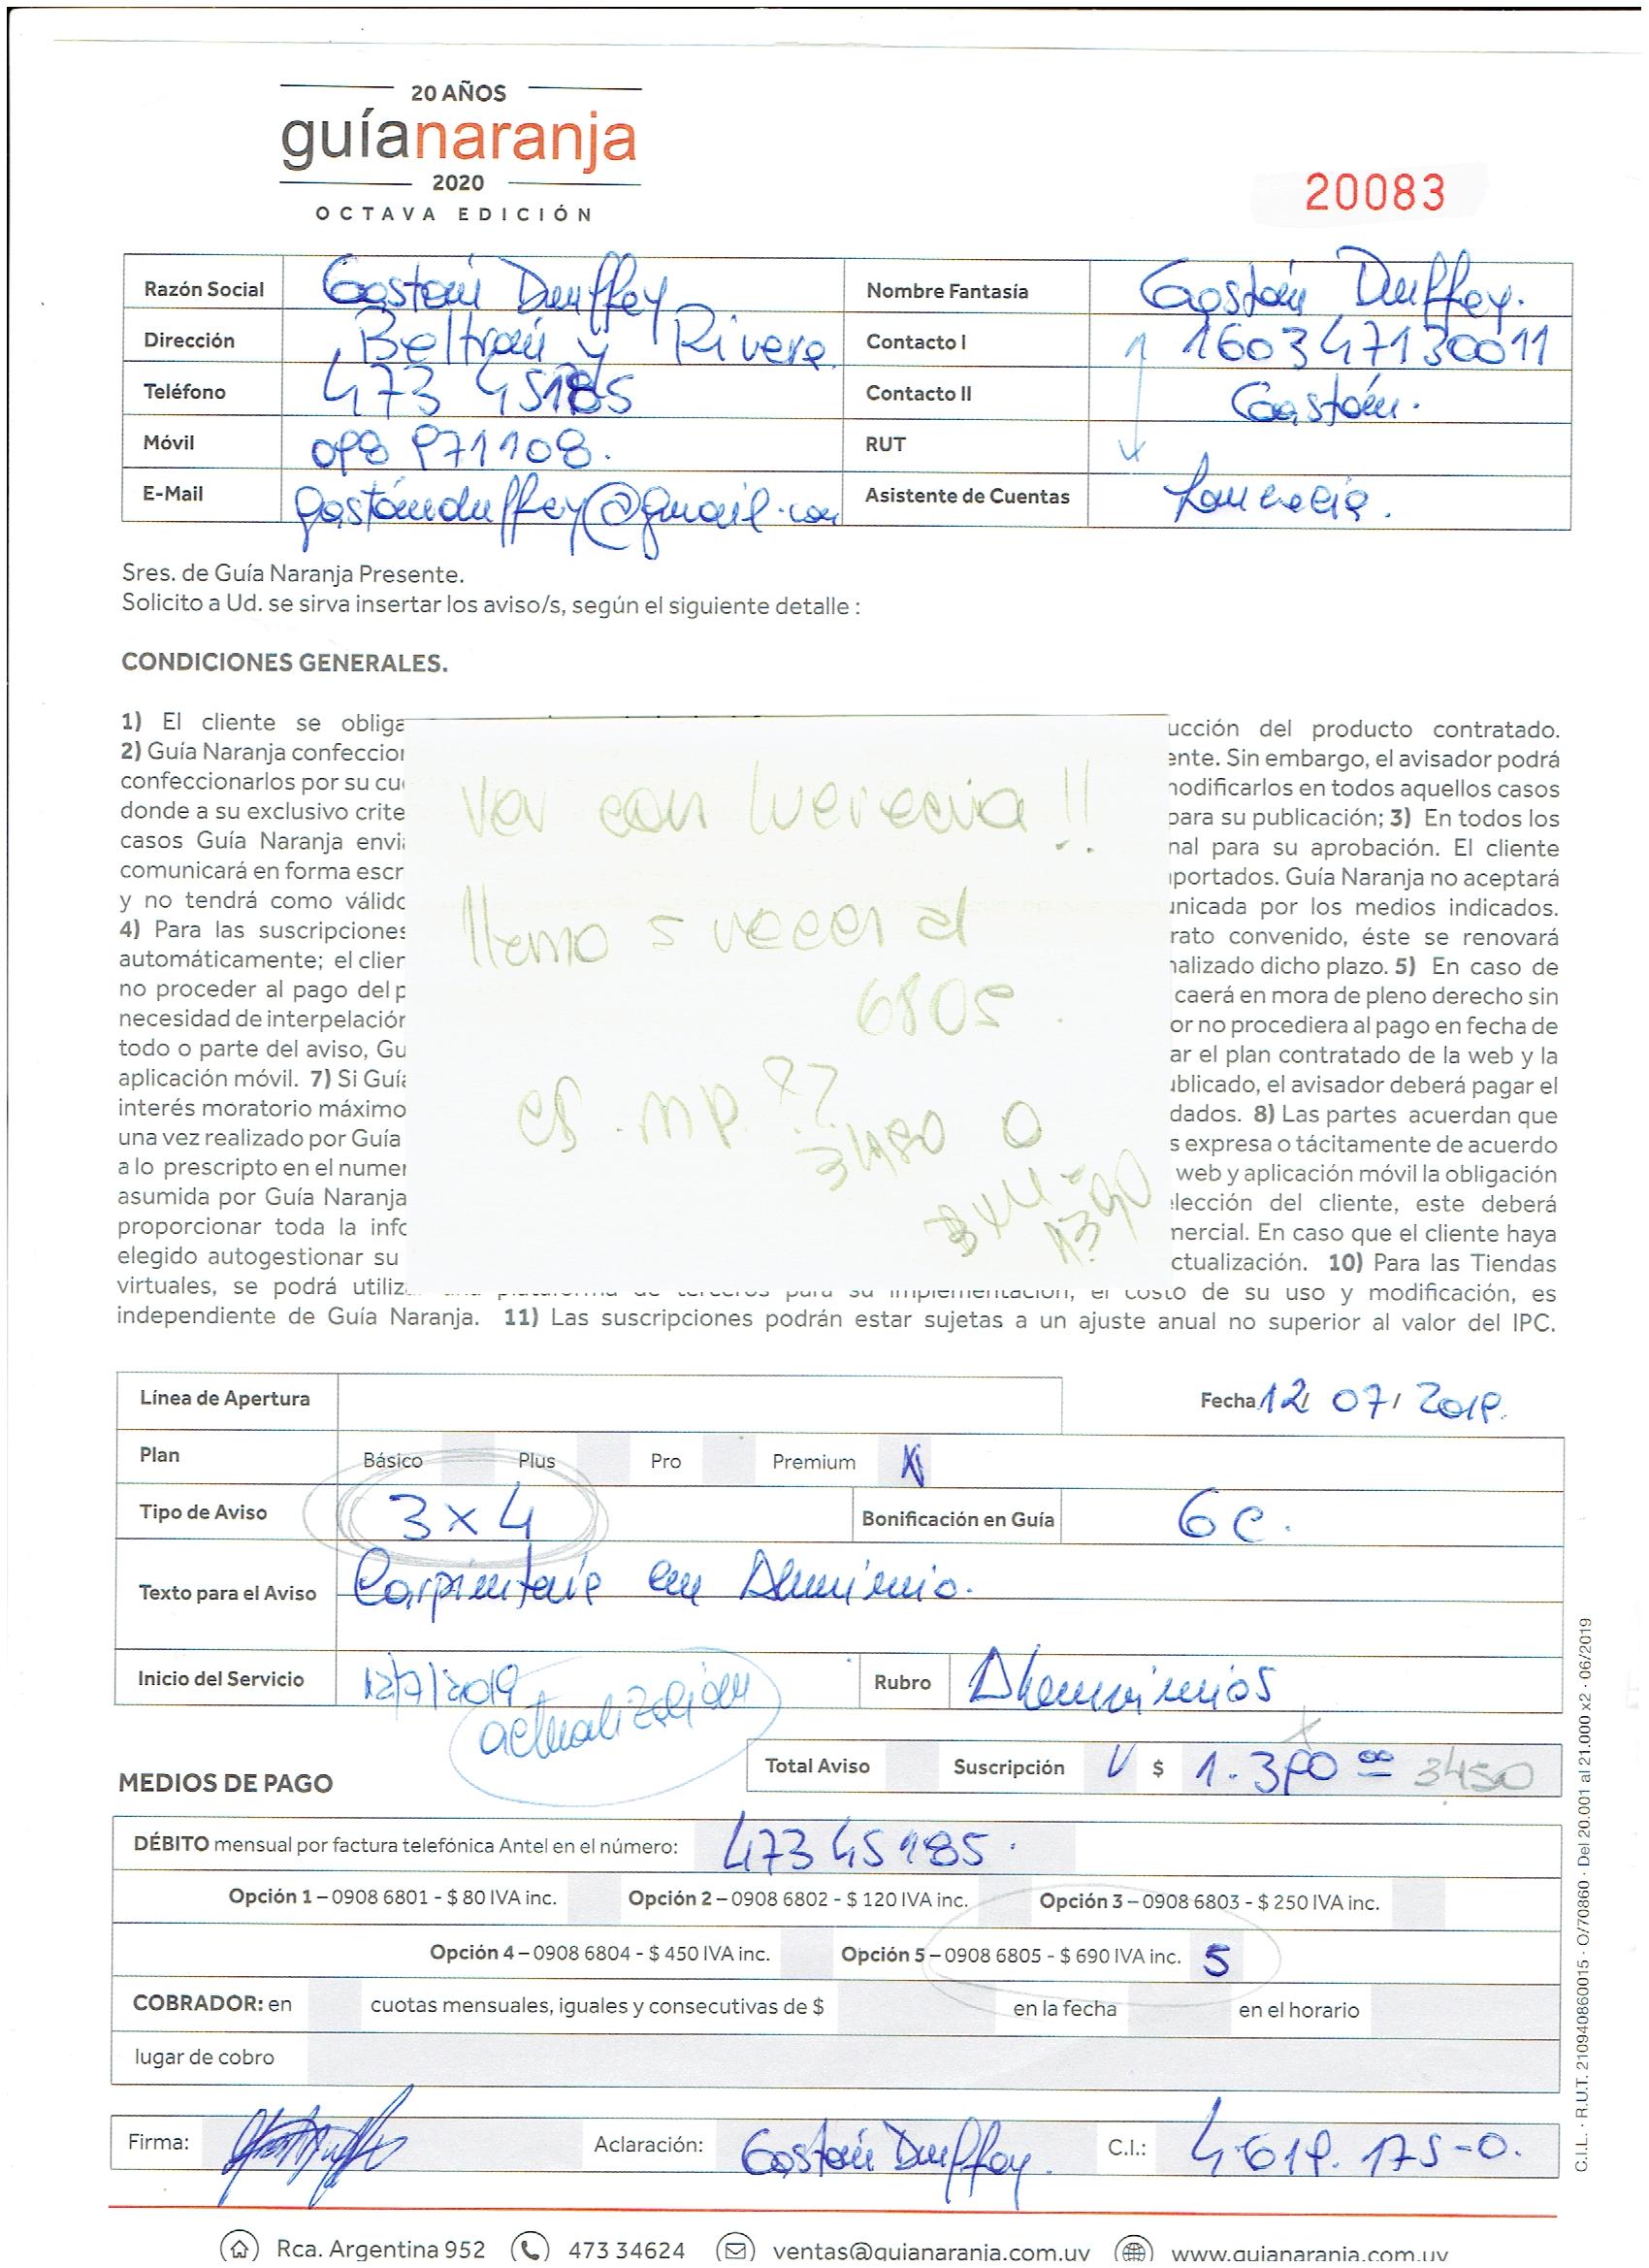 20 AÑOS
guíanaranja
2020
OCTAVA EDICIÓN
20083
Razón Social Gastón Duffey Nombre Fantasía Gastón Duffey.
Dirección Beltrán y Rivera Contacto I 160347130011
Teléfono 473 45185 Contacto II Gastón.
Móvil 098 971108. RUT
E-Mail gastonduffey@gmail.com Asistente de Cuentas
Sres. de Guía Naranja Presente.
Solicito a Ud. se sirva insertar los aviso/s, según el siguiente detalle :
CONDICIONES GENERALES.
1) El cliente se obliga ucción del producto contratado.
2) Guía Naranja confeccion ente. Sin embargo, el avisador podrá
confeccionarlos por su cu nodificarlos en todos aquellos casos
donde a su exclusivo crite para su publicación; 3) En todos los
casos Guía Naranja envi nal para su aprobación. El cliente
comunicará en forma escr portados. Guía Naranja no aceptará
y no tendrá como válido unicada por los medios indicados.
4) Para las suscripciones rato convenido, éste se renovará
automáticamente; el clien nalizado dicho plazo. 5) En caso de
no proceder al pago del p caerá en mora de pleno derecho sin
necesidad de interpelación or no procediera al pago en fecha de
todo o parte del aviso, Gu ar el plan contratado de la web y la
aplicación móvil. 7) Si Guía ublicado, el avisador deberá pagar el
interés moratorio máximo dados. 8) Las partes acuerdan que
una vez realizado por Guía s expresa o tácitamente de acuerdo
a lo prescripto en el numer web y aplicación móvil la obligación
asumida por Guía Naranja lección del cliente, este deberá
proporcionar toda la info mercial. En caso que el cliente haya
elegido autogestionar su ctualización. 10) Para las Tiendas
virtuales, se podrá utiliza una plataforma de terceros para su implementación, el costo de su uso y modificación, es
independiente de Guía Naranja. 11) Las suscripciones podrán estar sujetas a un ajuste anual no superior al valor del IPC.
Ver con Lucrecia !!
llamo 5 veces al
6805.
es mp ??
3450 o
3x4=
1390
Línea de Apertura Fecha 12/ 07/ 2019.
Plan Básico Plus Pro Premium X
Tipo de Aviso 3 x 4 Bonificación en Guía 6c.
Texto para el Aviso Carpintería en Aluminio.
Inicio del Servicio 12/7/2019 Rubro Aluminios
actualización
Total Aviso Suscripción V $ 1.390 00 3450
MEDIOS DE PAGO
DÉBITO mensual por factura telefónica Antel en el número: 473 45185.
Opción 1 – 0908 6801 - $ 80 IVA inc. Opción 2 – 0908 6802 - $ 120 IVA inc. Opción 3 – 0908 6803 - $ 250 IVA inc.
Opción 4 – 0908 6804 - $ 450 IVA inc. Opción 5 – 0908 6805 - $ 690 IVA inc. 5
COBRADOR: en cuotas mensuales, iguales y consecutivas de $ en la fecha en el horario
lugar de cobro
Firma: Aclaración: Gastón Duffey. C.I.: 4.619.175-0.
C.I.L. · R.U.T. 210940860015 · O/70860 · Del 20.001 al 21.000 x2 · 06/2019
Rca. Argentina 952 473 34624 ventas@guianaranja.com.uy www.guianaranja.com.uy